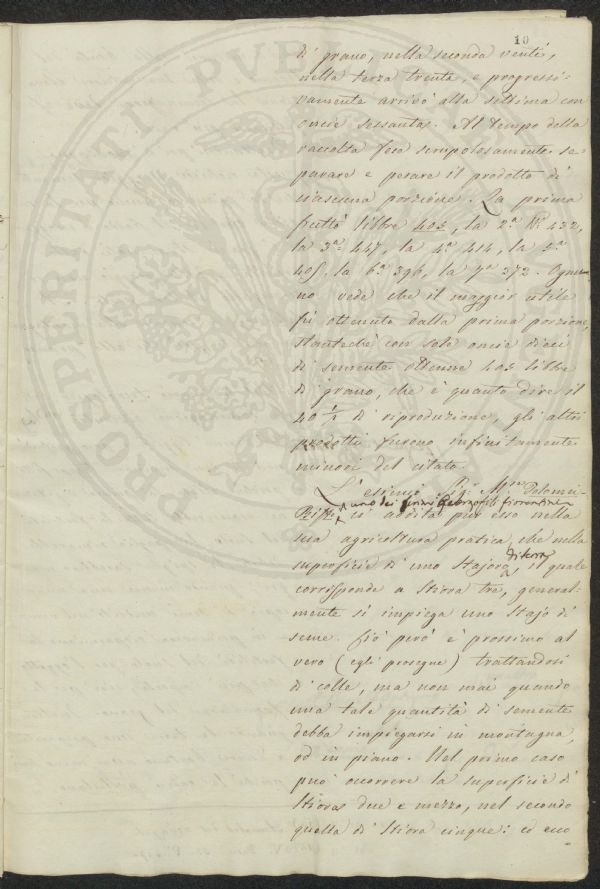 10
di grano, nella seconda venti,
nella terza trenta, e progressi-
vamente arrivò alla settima con
oncie sessanta. Al tempo della
raccolta fece scrupolosamente se-
parare e pesare il prodotto di
ciascuna porzione. La prima
fruttò libbre 402, la 2.ª N.º 432,
la 3.ª 447, la 4.ª 414, la 5.ª
405, la 6.ª 396, la 7.ª 372. Ognu-
no vede che il maggior utile
fù ottenuto dalla prima porzione,
stantechè con sole oncie dieci
di semente ottenne 402 libbre
di grano, che è quanto dire il
40 1/2 di riproduzione, gli altri
prodotti furono infinitamente
minori del citato.
L'esimio Sig.
uno dei primi Georgofili fiorentini
ci addita pur esso nella
sua agricoltura pratica, che nella
di terra
superficie di uno Stajoro, il quale
corrisponde a Stiora tre, general-
mente si impiega uno Stajo di
seme. Ciò però è prossimo al
vero (egli prosegue) trattandosi
di colle, ma non mai quando
una tale quantità di semente
debba impiegarsi in montagna,
od in piano. Nel primo caso
può occorrere la superficie di
Stiora due e mezzo, nel secondo
quella di Stiora cinque: ed ecco
PROSPERITATI PVBLICAE